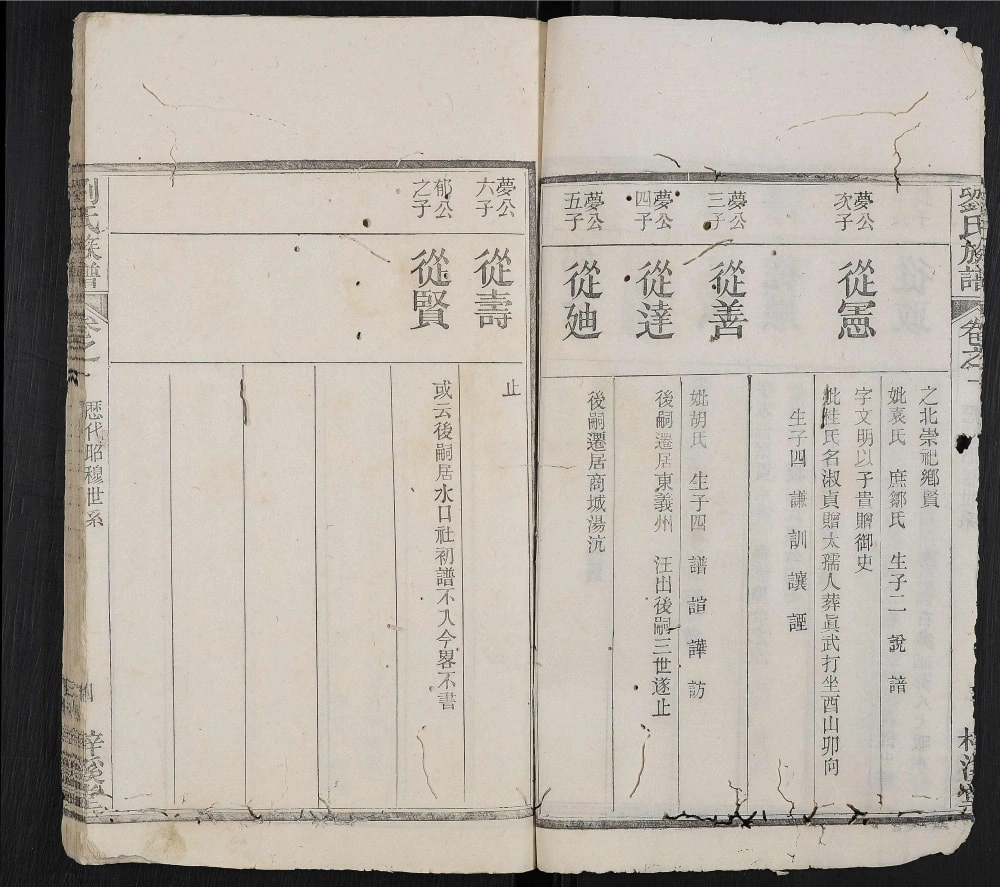 劉氏族譜
卷之
之北崇祀鄉賢
妣袁氏 庶鄒氏 生子二 說 諳
夢公次子
從憲
字文明以子貴贈御史
妣桂氏名淑貞贈太孺人葬眞武打坐酉山卯向
生子四 謙 訓 讓 諲
夢公三子
從善
妣胡氏 生子四 譜 諠 譁 訪
夢公四子
從達
後嗣遷居東義州 汪出後嗣三世遂止
夢公五子
從廸
後嗣遷居商城湯沆
夢公六子
從壽
止
郁公之子
從賢
或云後嗣居水口社初譜不入今畧不書
劉氏族譜
卷之一
歷代昭穆世系
梓溪堂